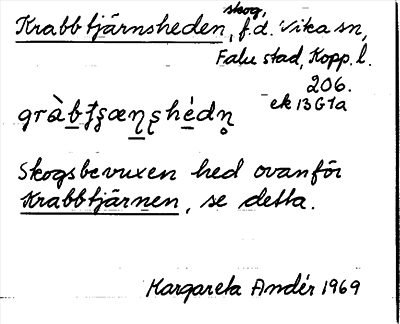 skog,
Krabbtjärnsheden, f.d. Vika sn,
Falu stad, Kopp. l.
206.
ek 13G1a
Skogsbevuxen hed ovanför
Krabbtjärnen, se detta.
Margareta Andér 1969